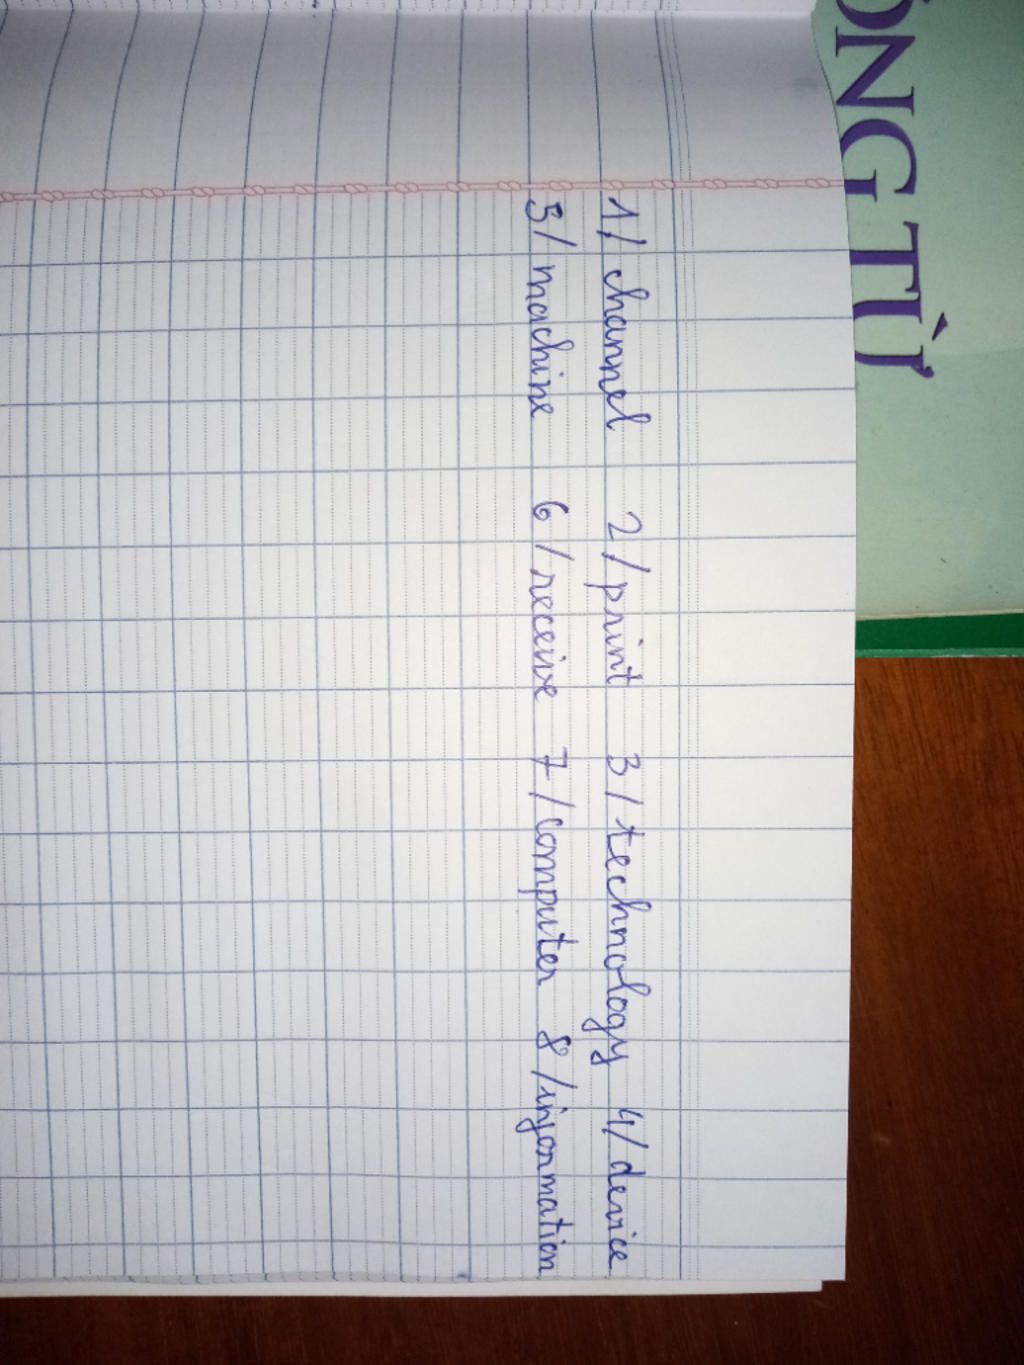 ÔNG TỪ
1/ channel 2/ print 3/ technology 4/ device
5/ machine 6/ receive 7/ computer 8/ information